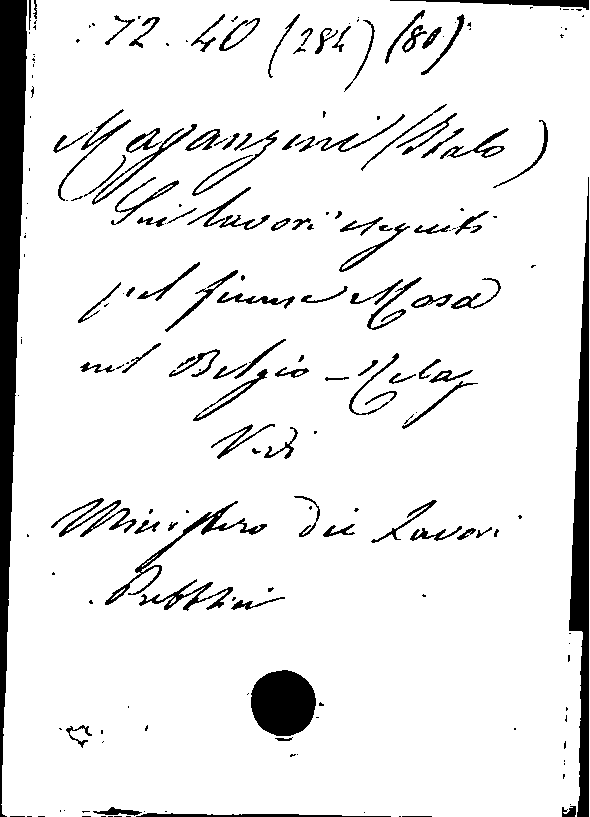 72. 40 (284) (80)
Maganzini (Italo)
Sui lavori eseguiti
pel fiume Mosa
nel Belgio - Relaz
Vedi
Ministero dei Lavori
Pubblici